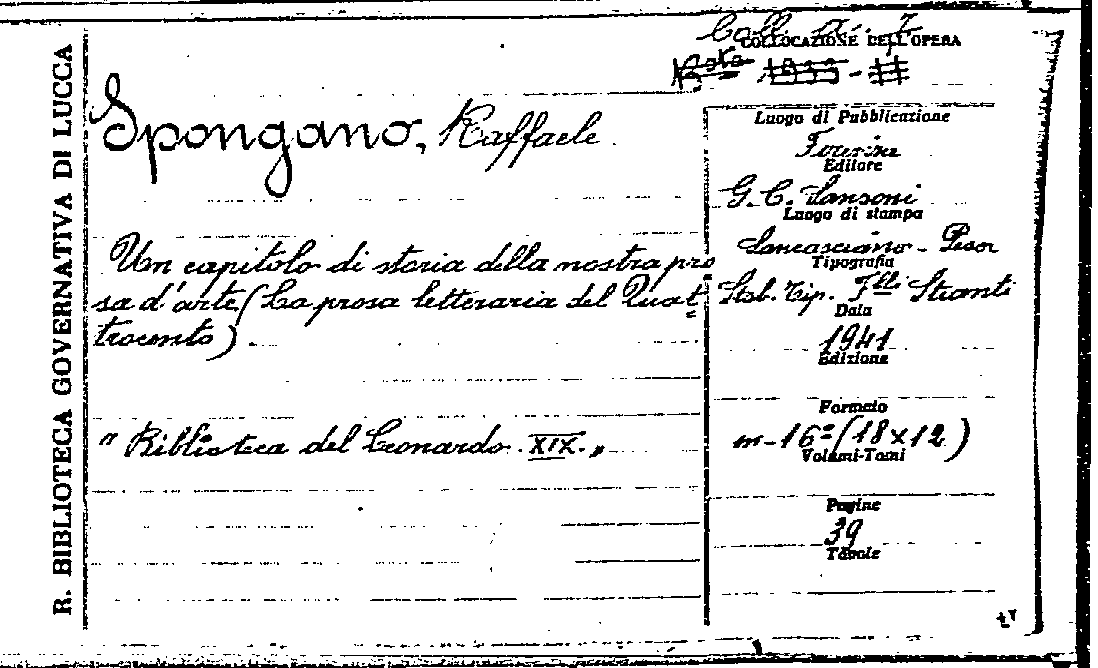 R. BIBLIOTECA GOVERNATIVA DI LUCCA
Coll.
COLLOCAZIONE DELL'OPERA
Spongano, Raffaele
Un capitolo di storia della nostra pro
sa d'arte (La prosa letteraria del Quat
trocento).
"Biblioteca del Leonardo. XIX.„
Luogo di Pubblicazione
Editore
G. C. Sansoni
Luogo di stampa
Sancasciano - Pesa
Tipografia
Stab. Tip. F.lli Stianti
Data
1941
Edizione
Formato
m-16º (18x12)
Volumi-Tomi
Pagine
39
Tavole